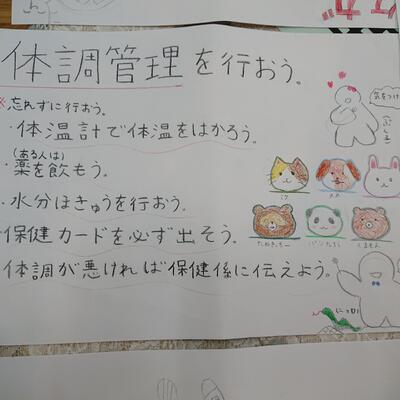 体調管理を行おう。
※忘れずに行おう。
・体温計で体温をはかろう。
(ある人は)
・薬を飲もう。
・水分ほきゅうを行おう。
・保健カードを必ず出そう。
・体調が悪ければ保健係に伝えよう。
気をつけ